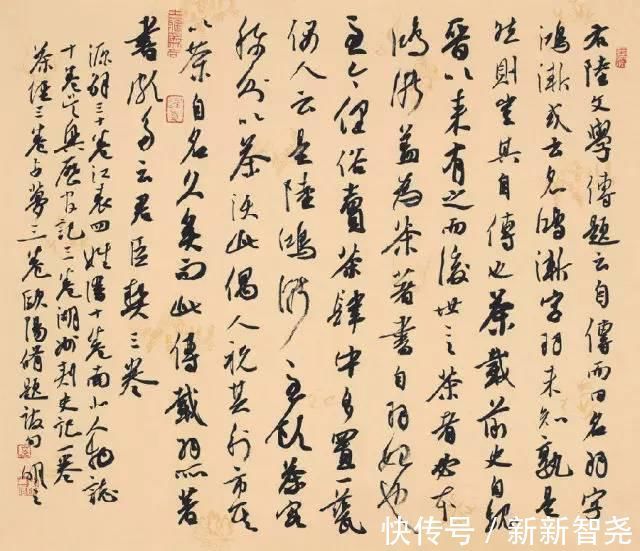 右陸文學傳題云自傳而曰名羽字
鴻漸或云名鴻漸字羽未知孰是
然則豈其自傳也茶載前史自魏
晉以來有之而後世言茶者必本
鴻漸蓋為茶著書自羽始也
至今俚俗賣茶肆中多置一甆
偶人云是陸鴻漸至飲茶客
稀則以茶沃此偶人祝其利市其
以茶自名久矣而此傳載羽所著
書頗多云君臣契三卷
源解三十卷江表四姓譜十卷南北人物志
十卷吳興歷官記三卷湖州刺史記一卷
茶經三卷占夢三卷歐陽脩題跋句
快传号／新新智尧